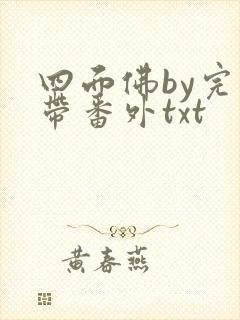 四面佛by完
带番外txt
黄春燕